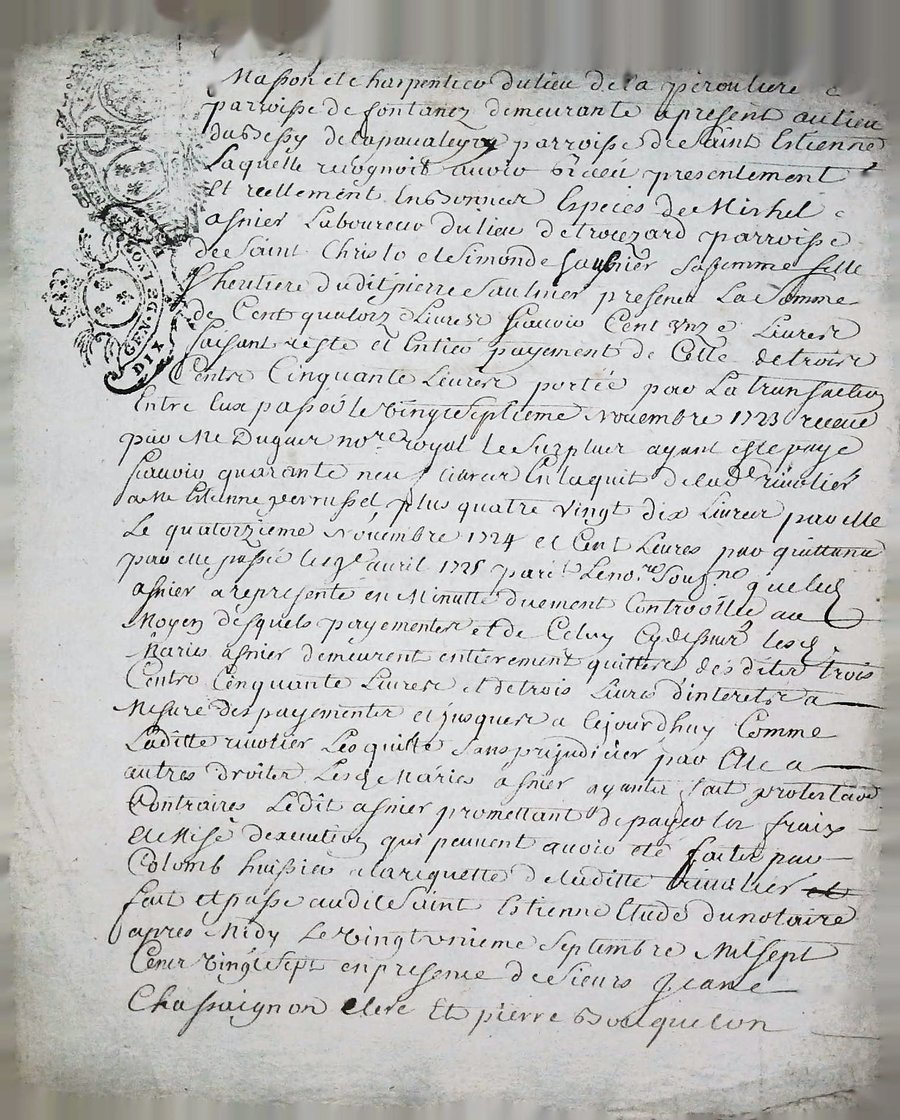 GEN. DE LYON
DIX
Masson et charpentier du lieu de la pérouliere
parroisse de fontanez demeurante apresent au lieu
du Bessy parroisse de Saint Estienne
Laquelle recognoit avoir Receu presentement
Et reellement En Bonnes Especes de Michel
asnier Laboureur du lieu de parroisse
de Saint Christo et Simonde Saulnier Sa femme fille
heritiere dudit pierre Saulnier presents La Somme
de Cent quatorze Livres Scavoir Cent unze Livres
faisant reste et Entier payement de Celle de trois
Cents Cinquante Livres portée par La transaction
Entre Eux passée le vingt septieme Novembre 1723 receue
par Me Duguer nore royal le Surplus ayant esté payé
Scavoir quarante neuf livres En l'aquit de lad. rivolier
a Me Estienne plus quatre vingt dix Livres par elle
Le quatorzieme Novembre 1724 et Cent Livres par quittance
par elle passée le 9e avril 1725 par Le nore Soug.né que led
asnier a representé en Minutte duement Controollée au
Moyen desquels payements et de Celuy Cy dessus lesd
Maries asnier demeurent entierement quittes desdites trois
Cents Cinquante Livres et de trois Livres d'interets a
Mesure des payements et jusques a Cejourdhuy Comme
Laditte rivolier Les quitte Sans prejudicier par Elle a
autres droits Lesd Maries asnier ayants fait protestaõn
Contraires Ledit asnier promettant de payer les fraix
et Mise dexecution qui peuvent avoir eté faits par
Colomb huissier a la requette de laditte rivolier et
fait et passé audit Saint Estienne Etude du notaire
apres Midy Le vingt unieme Septembre Mil Sept
Cents vingt Sept en presence de Sieurs Jean
Chassaignon Clerc Et pierre Bouquelon